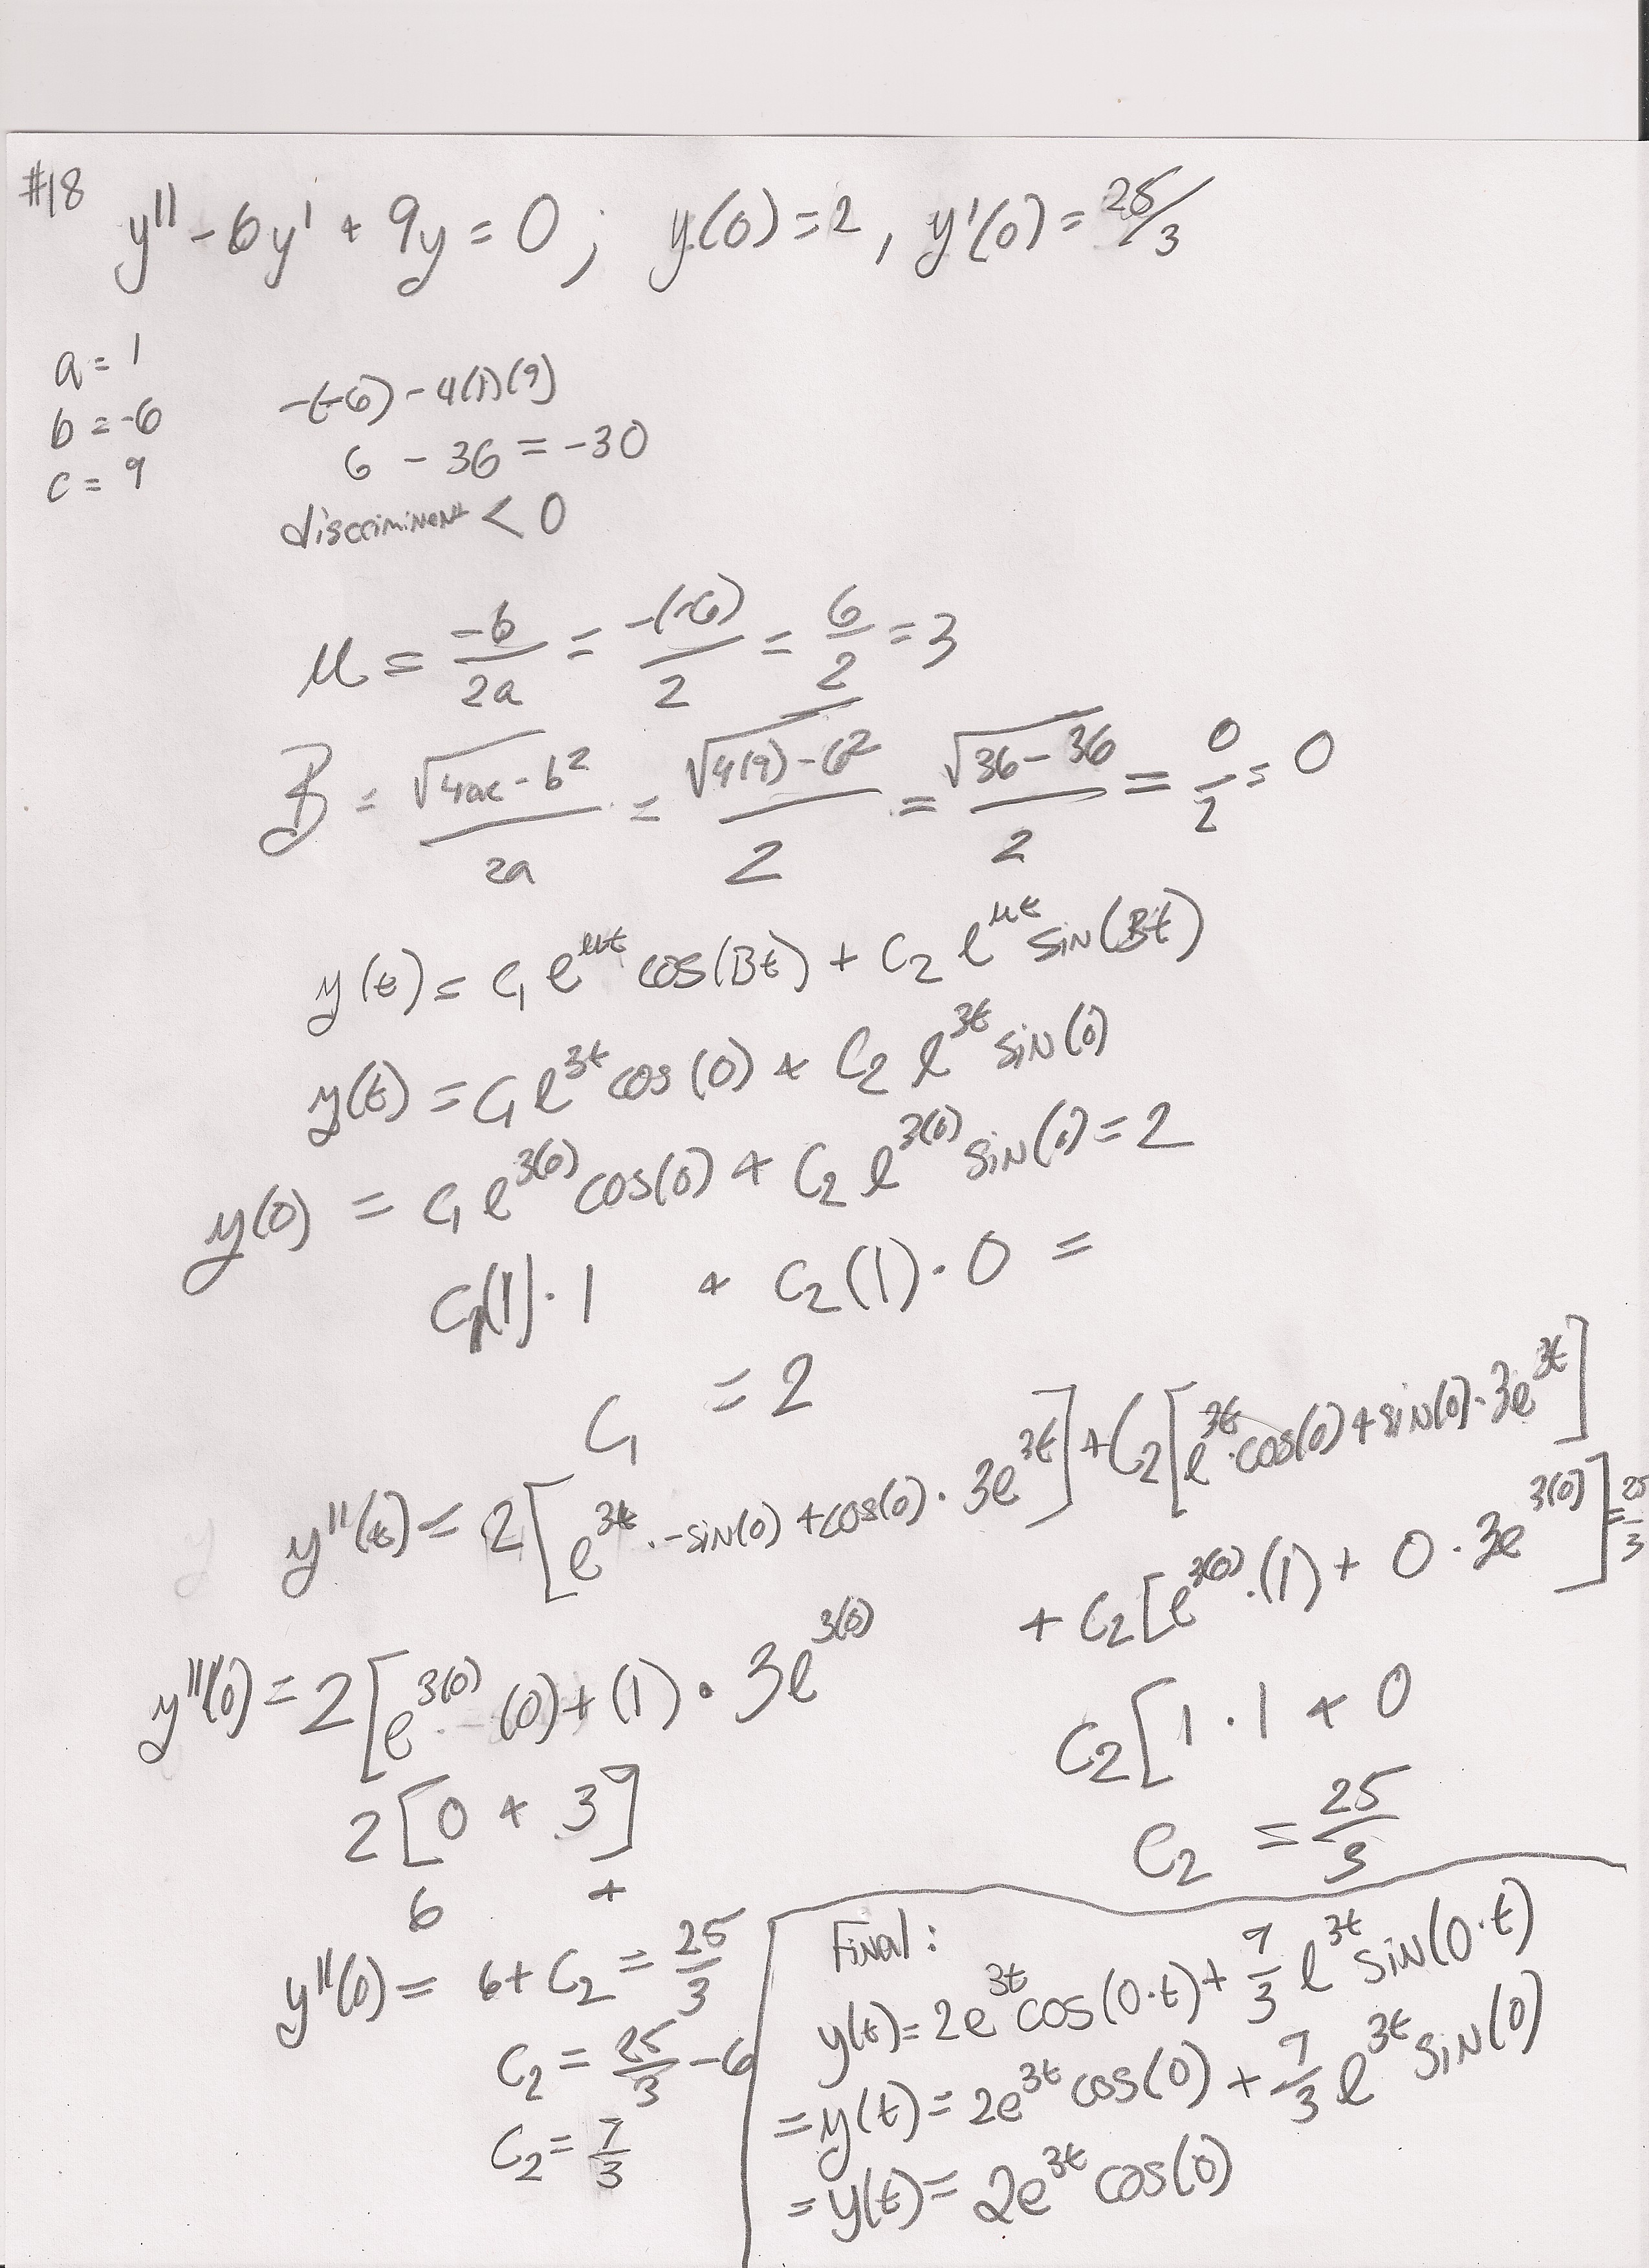 #18 y'' - 6y' + 9y = 0; y(0) = 2, y'(0) = 25/3
a = 1
b = -6
c = 9
-(-6) - 4(1)(9)
6 - 36 = -30
discriminent < 0
μ = -b/2a = -(-6)/2 = 6/2 = 3
B = √(4ac - b²)/2a = √(4(9) - 6²)/2 = √(36 - 36)/2 = 0/2 = 0
y(t) = C₁ e^μt cos(Bt) + C₂ e^μt sin(Bt)
y(t) = C₁ e^3t cos(0) + C₂ e^3t sin(0)
y(0) = C₁ e^3(0) cos(0) + C₂ e^3(0) sin(0) = 2
C₁(1)·1 + C₂(1)·0 =
C₁ = 2
y''(t) = 2[e^3t · -sin(0) + cos(0) · 3e^3t] + C₂[e^3t · cos(0) + sin(0) · 3e^3t]
y''(0) = 2[e^3(0) · -(0) + (1) · 3e^3(0) + C₂[e^3(0) · (1) + 0 · 3e^3(0)] = 25/3
2[0 + 3] C₂[1 · 1 + 0
6 + C₂ = 25/3
y''(0) = 6 + C₂ = 25/3
C₂ = 25/3 - 6
C₂ = 7/3
Final:
y(t) = 2e^3t cos(0·t) + 7/3 e^3t sin(0·t)
= y(t) = 2e^3t cos(0) + 7/3 e^3t sin(0)
= y(t) = 2e^3t cos(0)